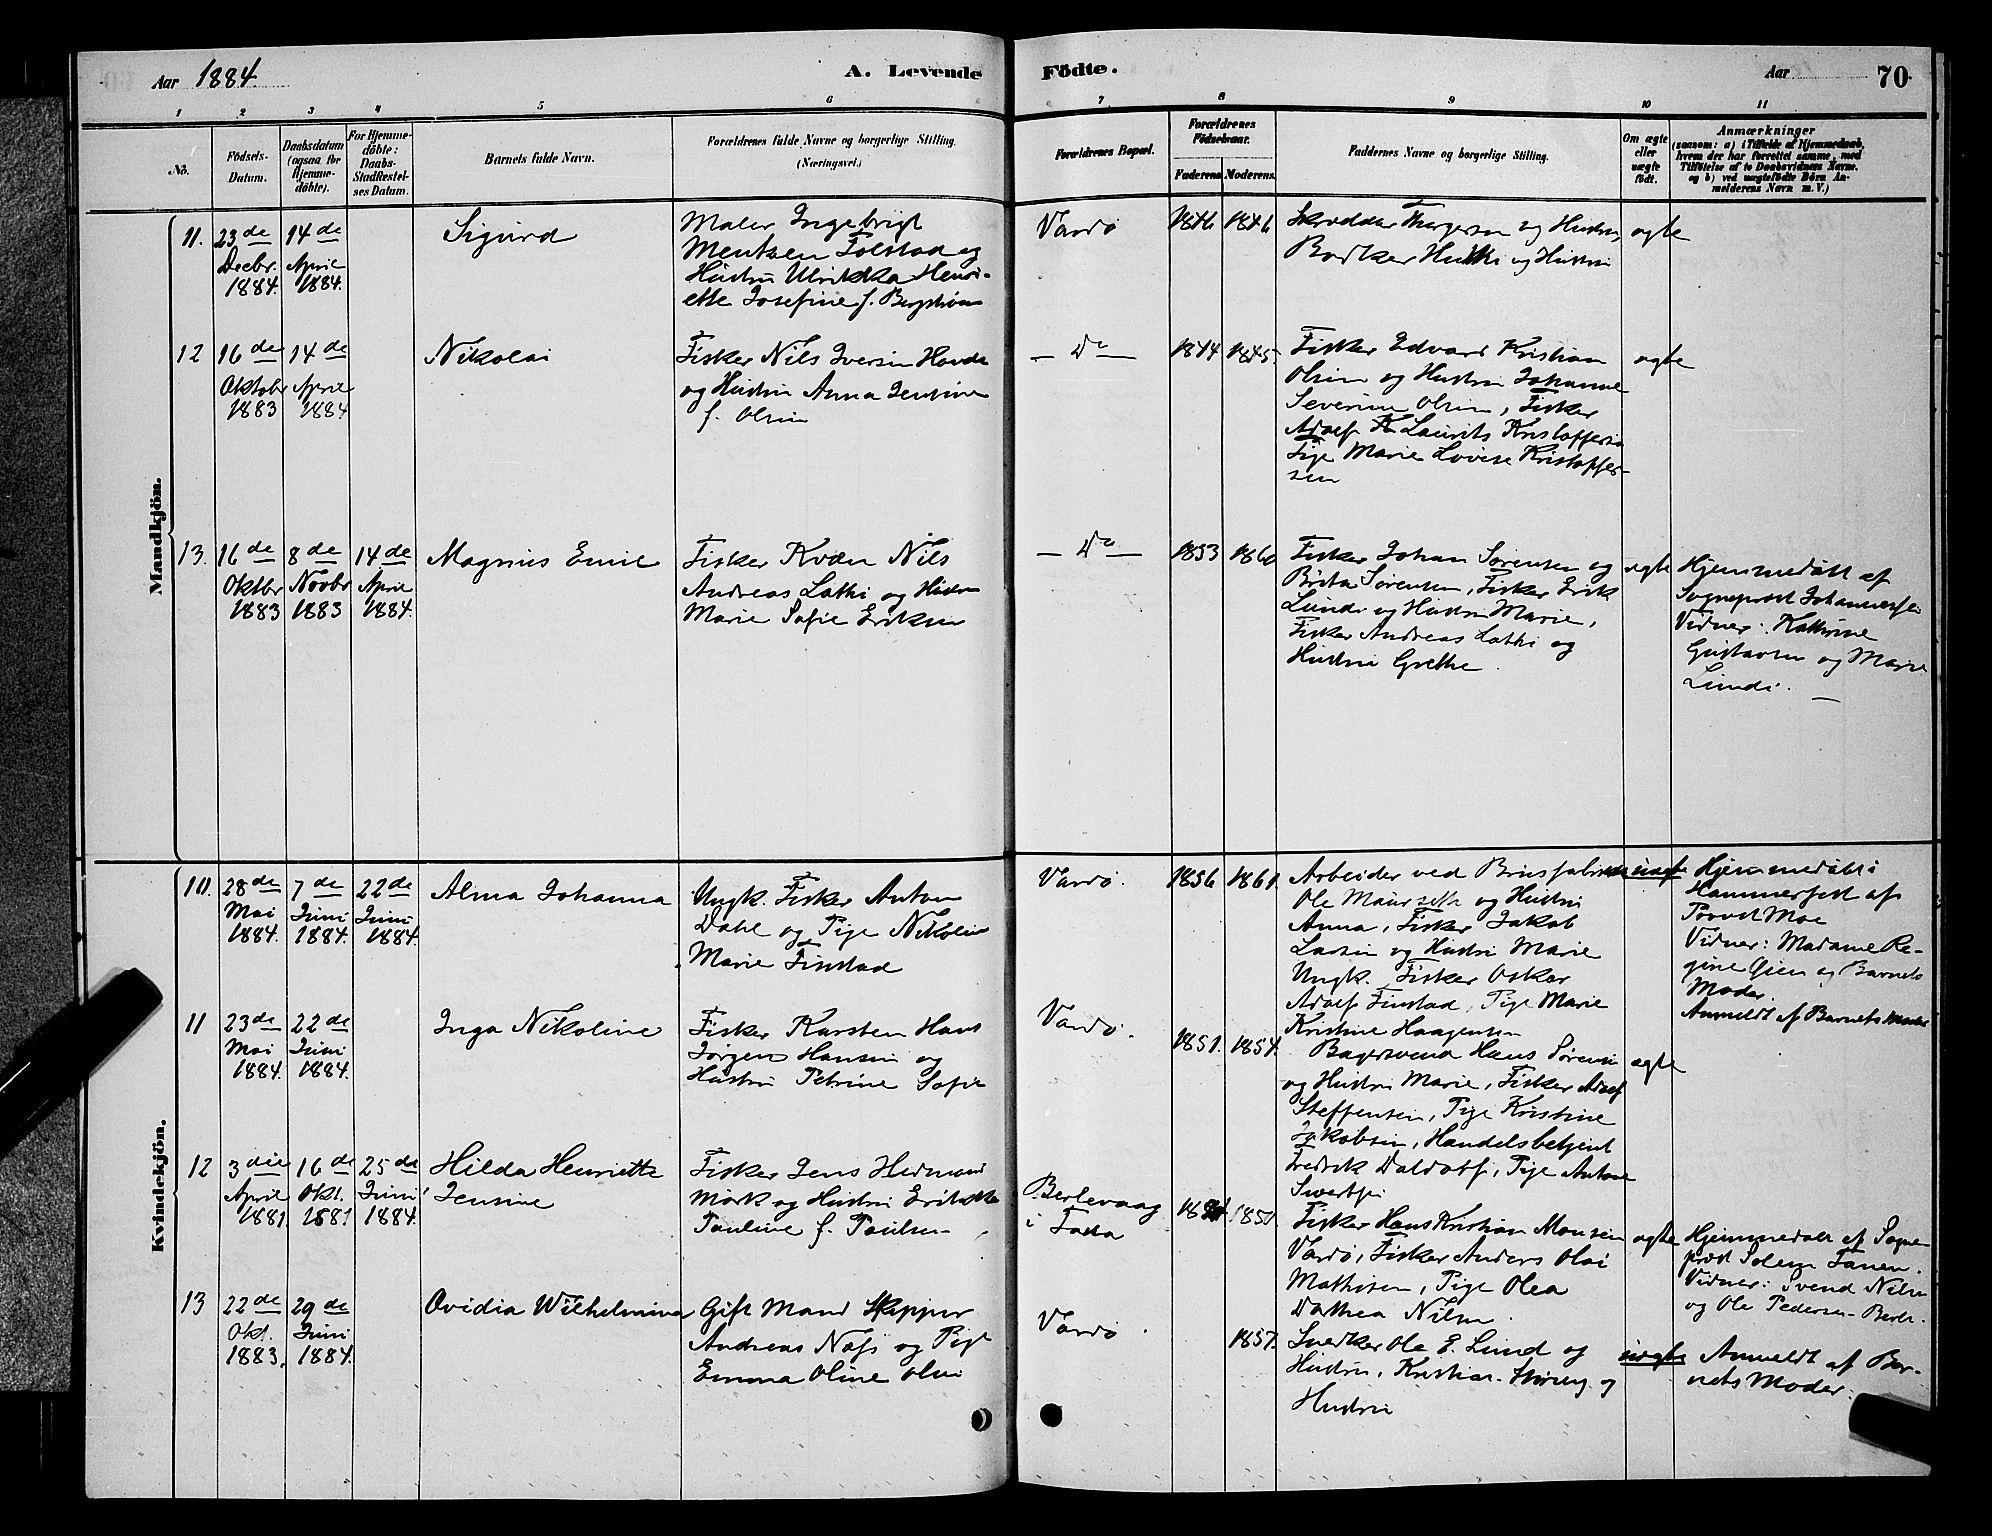 Aar 1884.
A. Levende Födte.
Aar
70
1 2 3 4 5 6 7 8 9 10 11
No.
Födsels-
Datum.
Daabsdatum
(ogsaa for
Hjemme-
döbte).
For Hjemme-
döbte:
Daabs-
Stadfæstel-
ses Datum.
Barnets fulde Navn.
Forældrenes fulde Navne og borgerlige Stilling.
(Næringsvei.)
Forældrenes Bopæl.
Forældrenes
Födselsaar.
Faderens. Moderens.
Faddernes Navne og borgerlige Stilling.
Om ægte
eller
uægte
födt.
Anmærkninger
(saasom: a) i Tilfælde af Hjemmedaab,
hvem der har forrettet samme, med
Tilföielse af to Daabsvidners Navne.
og b) ved uægtefödte Börn An-
melderens Navn m. V.)
Mandkjön.
11.
23de
Decbr.
1884.
14de
April
1884.
Sigurd
Maler Ingebrigt
Mentzen Tolstad og
Hustru Ulrikka Henri-
ette Josefine f. Bergstrøm
Vardø
1846 1846
og Hustru,
og Hustru
ægte
12
16de
Oktobr
1883
14de
April
1884
Nikolai
Fisker Nils Iversen
og Hustru Anna Jensine
f. Olsen
— Do —
1844 1845.
Fisker Edvard Kristian
Olsen og Hustru Johanne
Severine Olsen, Fisker
Adolf Laurits Kristoffersen
Pige Marie Lovise Kristoffer-
sen
ægte
13.
16de
Oktbr
1883
8de
Novbr
1883
14de
April
1884.
Magnus Emil
Fisker Kvæn Nils
Andreas Lathi og Hustru
Marie Sofie Eriksen
— Do —
1853 1860
Fisker Johan Sørensen og
Brita Sørensen, Fisker Erik
Lundi og Hustru Marie,
Fisker Andreas Lathi og
Hustru Grethe.
ægte
Hjemmedøbt af
Sogneprest Johannessen
Vidner: Kathrine
Gustavsen og Marie
Lundi. —
Kvindekjön.
10.
28de
Mai
1884.
7de
Juni
1884.
22de
Juni
1884.
Alma Johanna
Ungk. Fisker Anton
Dahl og Pige Nikoline
Marie Finstad
Vardø.
1856 1861.
Arbeider ved Brusfabriken
Ole og Hustru
Anna, Fisker Jakob
Larsen og Hustru Marie
Ungk. Fisker Oskar
Adolf Finstad, Pige Marie
Kristine Haagensen
uægte
Hjemmedøbt i
Hammerfest af
Provst Moe
Vidner: Madame Re-
gine Gien og Barnets
Moder.
Anmeldt af Barnets Moder
11
23de
Mai
1884.
22de
Juni
1884.
Inga Nikoline
Fisker Karsten Hans
Jørgen Hansen og
Hustru Petrine Sofie
Vardø.
1851. 1854.
Bagersvend Hans Sørensen
og Hustru Marie, Fisker Adolf
Steffensen, Pige Kristine
Jakobsen, Handelsbetjent
Fredrik, Pige Antone
ægte
12
3die
April
1881.
16de
Okt.
1881
25de
Juni
1884.
Hilda Henriette
Jensine
Fisker Jens Hermand
Mørk og Hustru
Pauline f. Paulsen
Berlevaag
i Tana
1851.
Fisker Hans Kristian Monsen
Vardø, Fisker Anders Olai
Mathisen, Pige Olea
Dorthea Nilsen.
ægte
Hjemmedøbt af Sogne-
prest Solem Tanen.
Vidner: Svend Nilsen
og Ole Pedersen Berlv.
13
22de
Okt.
1883.
29de
Juni
1884.
Ovidia Wilhelmina
Gift Mand Skipper
Andreas Næss og Pige
Emma Oline Olsen
Vardø.
1857.
Snedker Ole E. Lund og
Hustru, Kristian og
Hustru
uægte
Anmeldt af Bar-
nets Moder.